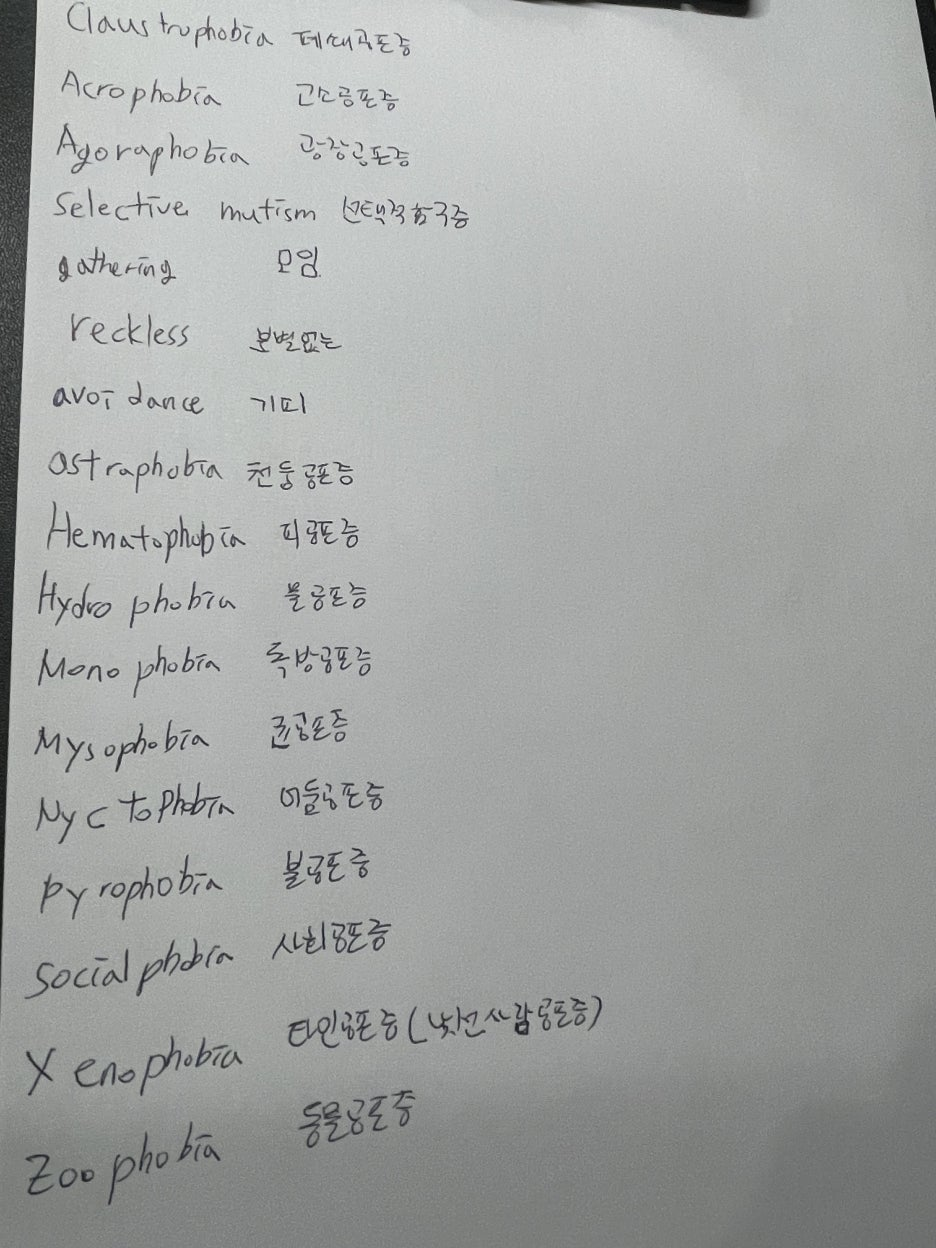 Claustrophobia 폐쇄공포증
Acrophobia 고소공포증
Agoraphobia 광장공포증
Selective mutism 선택적함구증
gathering 모임
reckless 분별없는
avoidance 기피
astraphobia 천둥공포증
Hematophobia 피공포증
Hydrophobia 물공포증
Monophobia 독방공포증
Mysophobia 균공포증
Nyctophobia 어둠공포증
pyrophobia 불공포증
Social phobia 사회공포증
Xenophobia 타인공포증(낯선사람공포증)
Zoophobia 동물공포증